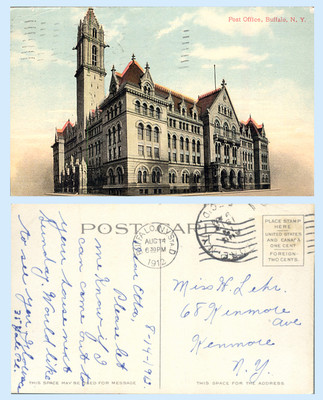 Post Office, Buffalo, N. Y.
POST CARD
BUFFALO, N.Y. STA. D.
AUG 14
6 30 PM
1912
PLACE STAMP
HERE
UNITED STATES
AND CANADA
ONE CENT
FOREIGN-
TWO CENTS.
8-14-1912.
Dear Etta,
Please let
me know if I
can come out to
your house next
Sunday. Would like
to see you.
Miss H. Lehr.
68 Kenmore
Ave
Kenmore
N.Y.
THIS SPACE MAY BE USED FOR MESSAGE
THIS SPACE FOR ADDRESS